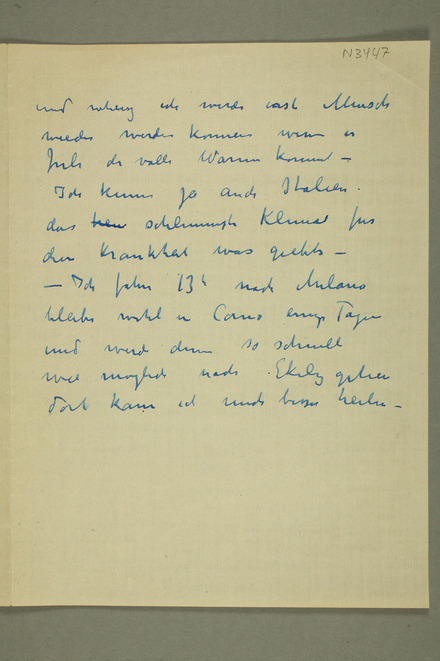 N3447
und ich werde erst Mensch
wieder werden können wenn
Juli die volle Wärme kommt –
Ich kenne ja auch Italien.
das schlimmste Klima für
die Krankheit was giebts –
– Ich fahre 13h nach Milano
bleibe wohl in Como einige Tage
und werde dann so schnell
wie möglich nach Ekely gehen
dort kann ich mich besser heilen –